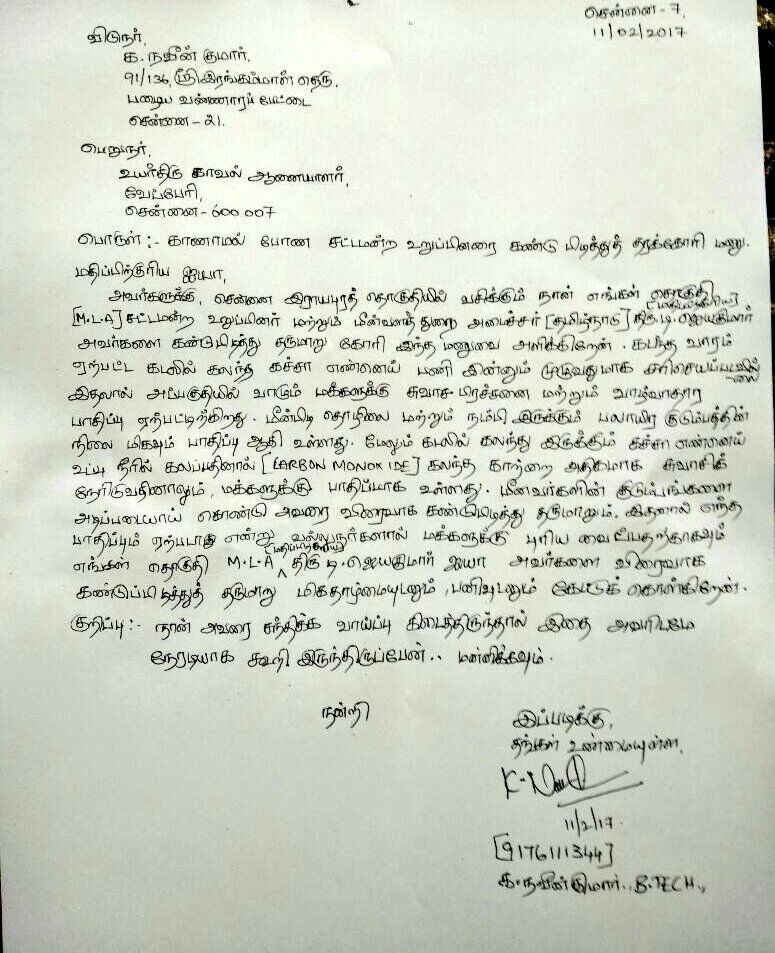 சென்னை - 7,
11/02/2017
விடுநர்,
க. நவீன் குமார்,
91/136, ஸ்ரீ இரங்கம்மாள் தெரு,
பழைய வண்ணாரப் பேட்டை
சென்னை - 21.
பெறுநர்,
உயர்திரு காவல் ஆணையாளர்,
வேப்பேரி,
சென்னை - 600 007
பொருள் :- காணாமல் போன சட்டமன்ற உறுப்பினரை கண்டு பிடித்துத் தரக்கோரி மனு.
மதிப்பிற்குரிய ஐயா,
அவர்களுக்கு, சென்னை இராயபுரத் தொகுதியில் வசிக்கும் நான் எங்கள் தொகுதி
[M.L.A] சட்டமன்ற உறுப்பினர் மற்றும் மீன்வளத் துறை அமைச்சர் [தமிழ்நாடு] [மதிப்பிற்குரிய] திரு. டி. ஜெயகுமார்
அவர்களை கண்டுபிடித்து தருமாறு கோரி இந்த மனுவை அளிக்கிறேன். கடந்த வாரம்
ஏற்பட்ட கடலில் கலந்த கச்சா எண்ணெய் பணி இன்னும் முழுவதுமாக சரிசெய்யபடவில்லை
இதலால் அப்பகுதியில் வாழும் மக்களுக்கு சுவாச பிரச்சனை மற்றும் வாழ்வாதார
பாதிப்பு ஏற்பட்டிற்கிறது. மீன்பிடி தொழிலை மற்றும் நம்பி இருக்கும் பலாயிர குடும்பத்தின்
நிலை மிகவும் பாதிப்பு ஆகி உள்ளது. மேலும் கடலில் கலந்து இருக்கும் கச்சா எண்ணெய்
உப்பு நீரில் கலப்பதினால் [CARBON MONOXIDE] கலந்த காற்றை அதிகமாக சுவாசிக்
நேரிடுவதினாலும், மக்களுக்கு பாதிப்பாக உள்ளது. மீனவர்களின் குடும்பங்களை
அடிப்படையாய் கொண்டு அவரை விரைவாக கண்டுபிடித்து தருமாறும், இதனால் எந்த
பாதிப்பும் ஏற்படாது என்று வல்லுநர்களால் மக்களுக்கு புரிய வைப்பதற்காகவும்
எங்கள் தொகுதி M.L.A மதிப்பிற்குரிய திரு டி. ஜெயகுமார் ஐயா அவர்களை விரைவாக
கண்டுப்பிடித்துத் தருமாறு மிகதாழ்மையுடனும், பணிவுடனும் கேட்டுக் கொள்கிறேன்.
குறிப்பு :- நான் அவரை சந்திக்க வாய்ப்பு கிடைத்திருந்தால் இதை அவரிடமே
நேரடியாக கூறி இருந்திருப்பேன்.. மன்னிக்கவும்.
நன்றி
இப்படிக்கு,
தங்கள் உண்மையுள்ள,
11/2/17.
[9176111344]
க. நவீன்குமார்., B.TECH.,